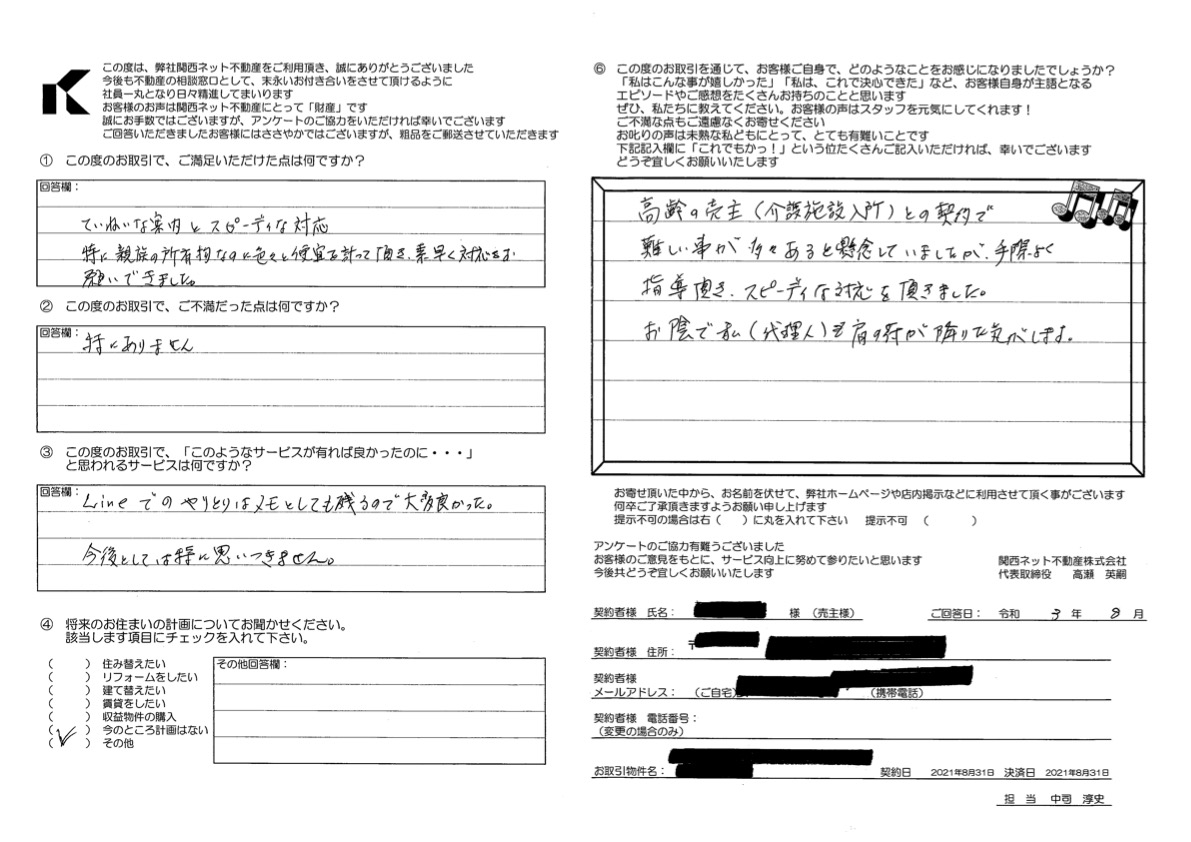 この度は、弊社関西ネット不動産をご利用頂き、誠にありがとうございました
今後も不動産の相談窓口として、末永いお付き合いをさせて頂けるように
社員一丸となり日々精進してまいります
お客様のお声は関西ネット不動産にとって「財産」です
誠にお手数ではございますが、アンケートのご協力をいただければ幸いでございます
ご回答いただきましたお客様にはささやかではございますが、粗品をご郵送させていただきます
① この度のお取引で、ご満足いただけた点は何ですか？
回答欄：
ていねいな案内とスピーディな対応
特に親族の所有物なのに色々と便宜を計って頂き、素早く対応をお
願いできました。
② この度のお取引で、ご不満だった点は何ですか？
回答欄：
特にありません
③ この度のお取引で、「このようなサービスが有れば良かったのに・・・」
と思われるサービスは何ですか？
回答欄：
Lineでのやりとりはメモとしても残るので大多良かった。
今後としては特に思いつきません。
④ 将来のお住まいの計画についてお聞かせください。
該当します項目にチェックを入れて下さい。
（　　）住み替えたい
（　　）リフォームをしたい
（　　）建て替えたい
（　　）賃貸をしたい
（　　）収益物件の購入
（✓）今のところ計画はない
（　　）その他
その他回答欄：
⑥ この度のお取引を通じて、お客様ご自身で、どのようなことをお感じになりましたでしょうか？
「私はこんな事が嬉しかった」「私は、これで決心できた」など、お客様自身が主語となる
エピソードやご感想をたくさんお持ちのことと思います
ぜひ、私たちに教えてください。お客様の声はスタッフを元気にしてくれます！
ご不満な点もご遠慮なくお寄せください
お叱りの声は未熟な私どもにとって、とても有難いことです
下記記入欄に「これでもかっ！」という位たくさんご記入いただければ、幸いでございます
どうぞ宜しくお願いいたします
高齢の売主（介護施設入所）との契約で
難しい事が多々あると懸念していましたが、手際よく
指導頂き、スピーディな対応を頂きました。
お陰で私（代理人）も肩の荷が降りた気がします。
お寄せ頂いた中から、お名前を伏せて、弊社ホームページや店内掲示などに利用させて頂く事がございます
何卒ご了承頂きますようお願い申し上げます
提示不可の場合は右（　　）に丸を入れて下さい　提示不可　（　　　　）
アンケートのご協力有難うございました
お客様のご意見をもとに、サービス向上に努めて参りたいと思います
今後共どうぞ宜しくお願いいたします
関西ネット不動産株式会社
代表取締役　高瀬　英嗣
契約者様 氏名：　様（売主様）　ご回答日：　令和　3 年　9 月
契約者様 住所：〒
契約者様
メールアドレス：（ご自宅）　（携帯電話）
契約者様 電話番号：
（変更の場合のみ）
お取引物件名：　契約日　2021年8月31日　決済日　2021年8月31日
担　当　中司　淳史